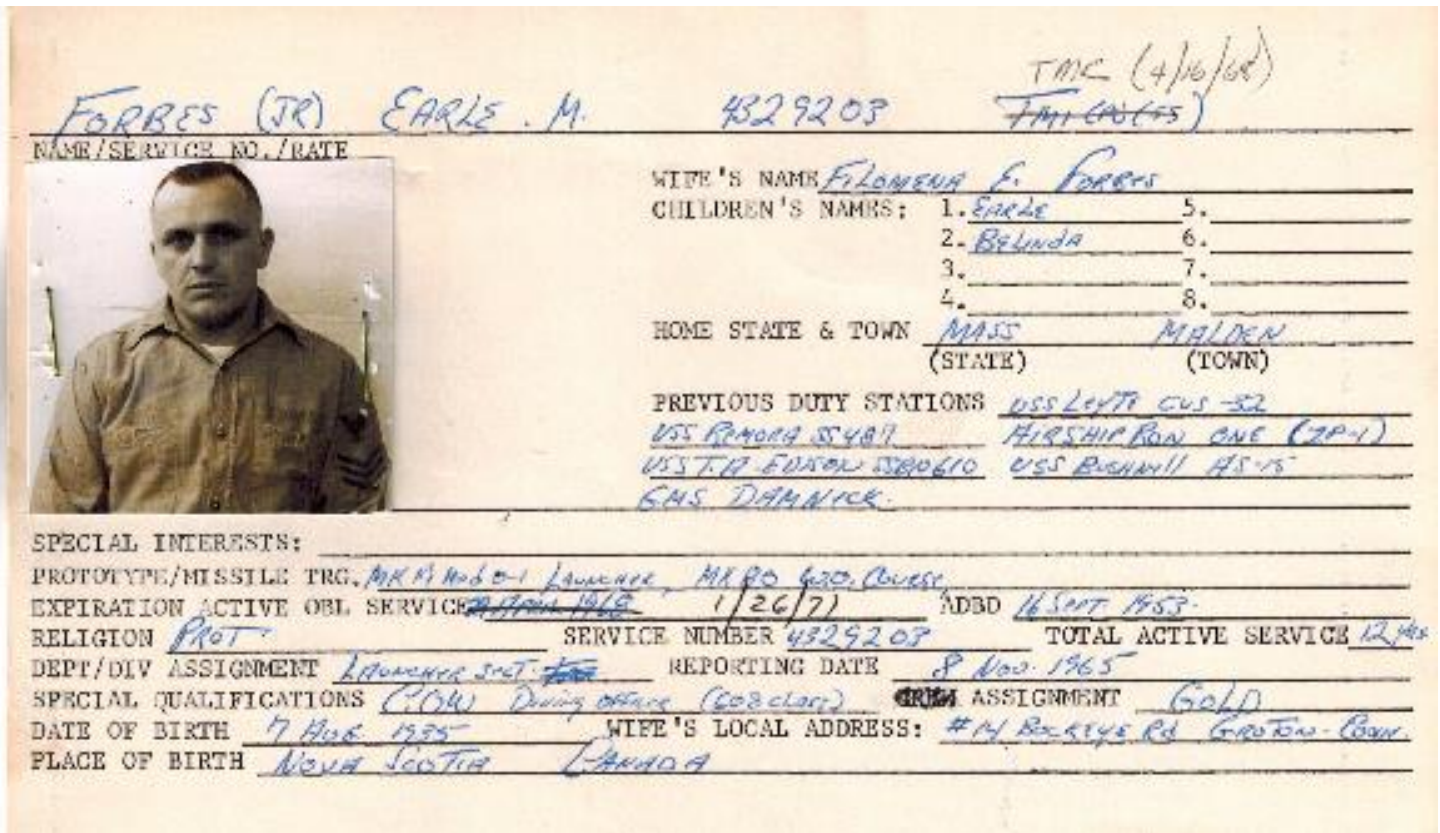 TMC (4/16/68)
FORBES (JR) EARLE . M. 4329203 TM1 (SS)
NAME/SERVICE NO./RATE
WIFE'S NAME FILOMENA E. FORBES
CHILDREN'S NAMES: 1. EARLE 5.
2. BELINDA 6.
3. 7.
4. 8.
HOME STATE & TOWN MASS MALDEN
(STATE) (TOWN)
PREVIOUS DUTY STATIONS USS LEYTE CVS-32
USS REMORA SS487 AIRSHIP RON ONE (ZP-1)
USS T.A. EDISON SSBN610 USS BUSHNELL AS-15
GMS DAMNECK.
SPECIAL INTERESTS:
PROTOTYPE/MISSILE TRG. MK Mod 0-1 LAUNCHER, MK 80 COURSE
EXPIRATION ACTIVE OBL SERVICE APRIL 1968 1/26/71 ADBD 16 SEPT 1953.
RELIGION PROT. SERVICE NUMBER 4329203 TOTAL ACTIVE SERVICE 12 yrs
DEPT/DIV ASSIGNMENT LAUNCHER REPORTING DATE 8 Nov. 1965
SPECIAL QUALIFICATIONS C.O.W Diving officer (608 class) ASSIGNMENT GOLD
DATE OF BIRTH 7 AUG 1935 WIFE'S LOCAL ADDRESS: #14 BUCKEYE Rd GROTON-CONN.
PLACE OF BIRTH NOVA SCOTIA CANADA